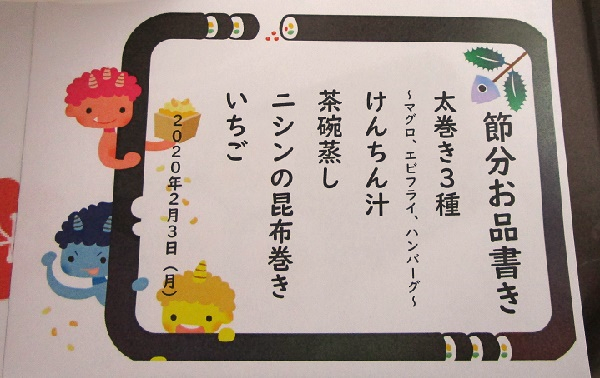 節分お品書き
太巻き3種
～マグロ、エビフライ、ハンバーグ～
けんちん汁
茶碗蒸し
ニシンの昆布巻き
いちご
2020年2月3日（月）